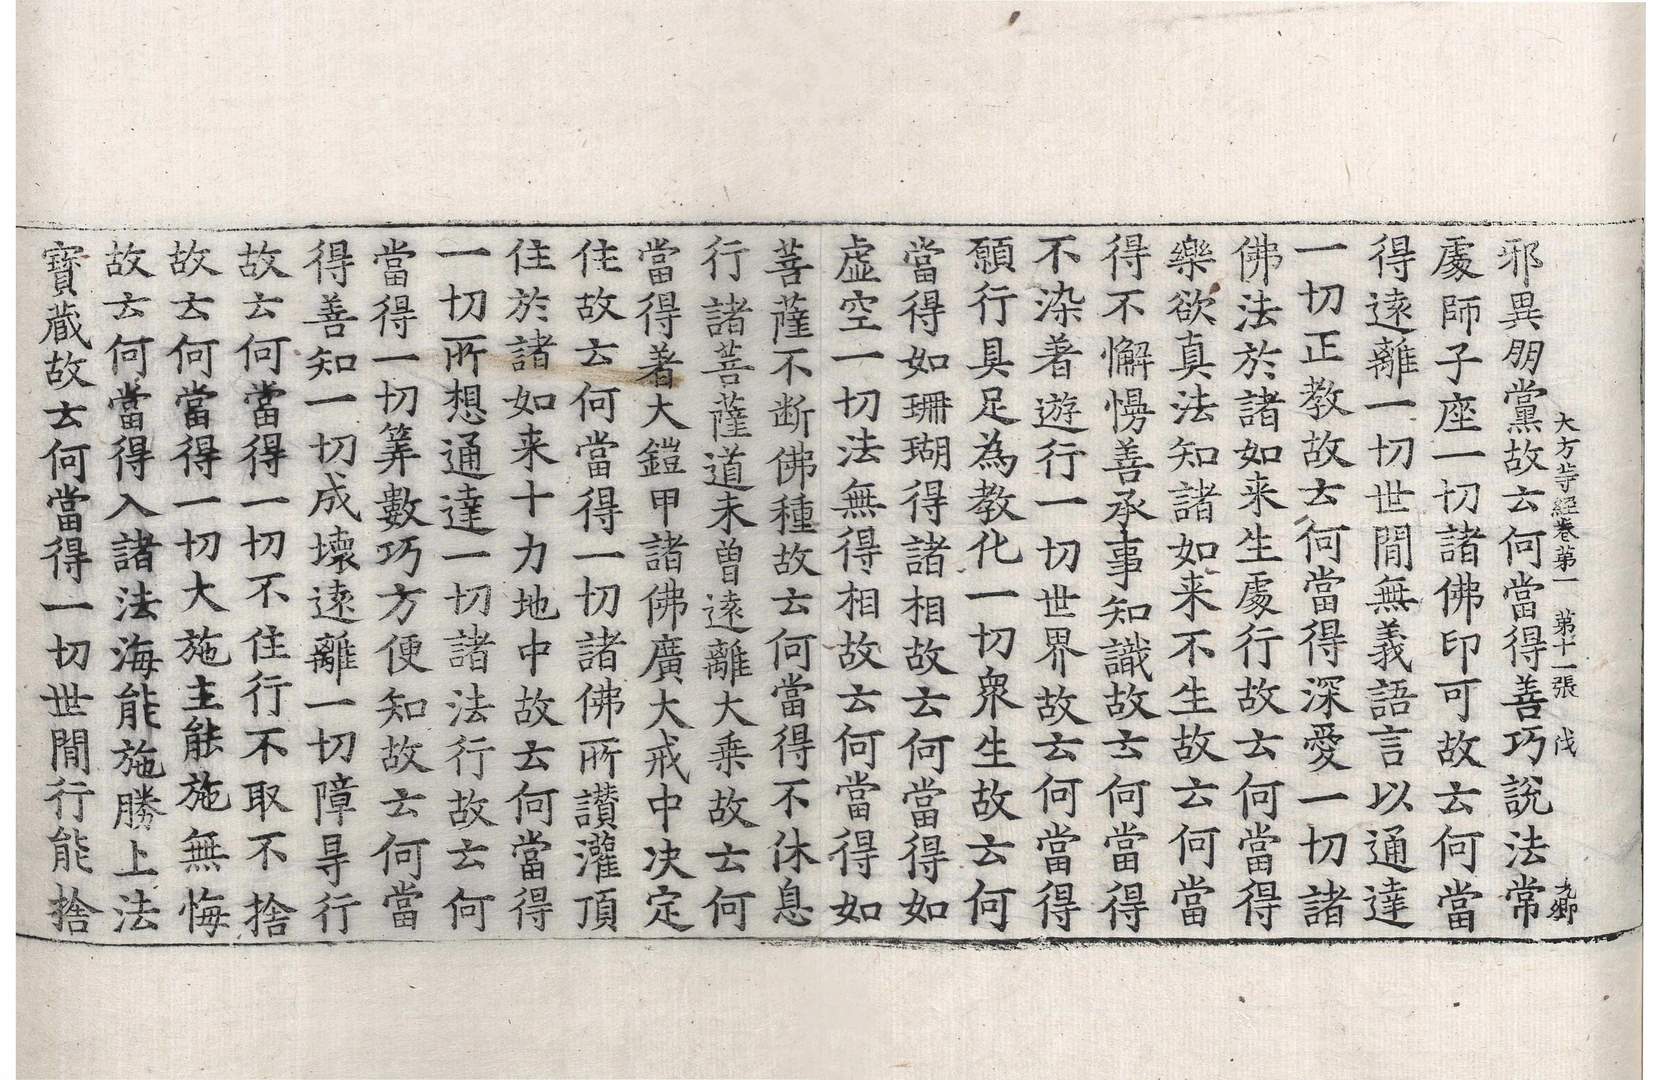 大方等経卷苐一　第十一張　戊　九郷
邪異朋黨故去何當得善巧說法常
處師子座一切諸佛印可故去何當
得遠離一切世閒無義語言以通達
一切正教故去何當得深愛一切諸
佛法於諸如来生處行故去何當得
樂欲真法知諸如来不生故去何當
得不懈慢善承事知識故去何當得
不染著遊行一切世界故去何當得
願行具足為教化一切衆生故去何
當得如珊瑚得諸相故去何當得如
虛空一切法無得相故去何當得如
菩薩不断佛種故去何當得不休息
行諸菩薩道未曽遠離大乗故去何
當得著大鎧甲諸佛廣大戒中决定
住故去何當得一切諸佛所讃灌頂
住於諸如来十力地中故去何當得
一切所想通達一切諸法行故去何
當得一切筭數巧方便知故去何當
得善知一切成壞遠離一切障㝵行
故去何當得一切不住行不取不捨
故去何當得一切大施主能施無悔
故去何當得入諸法海能施勝上法
寶蔵故去何當得一切世閒行能捨